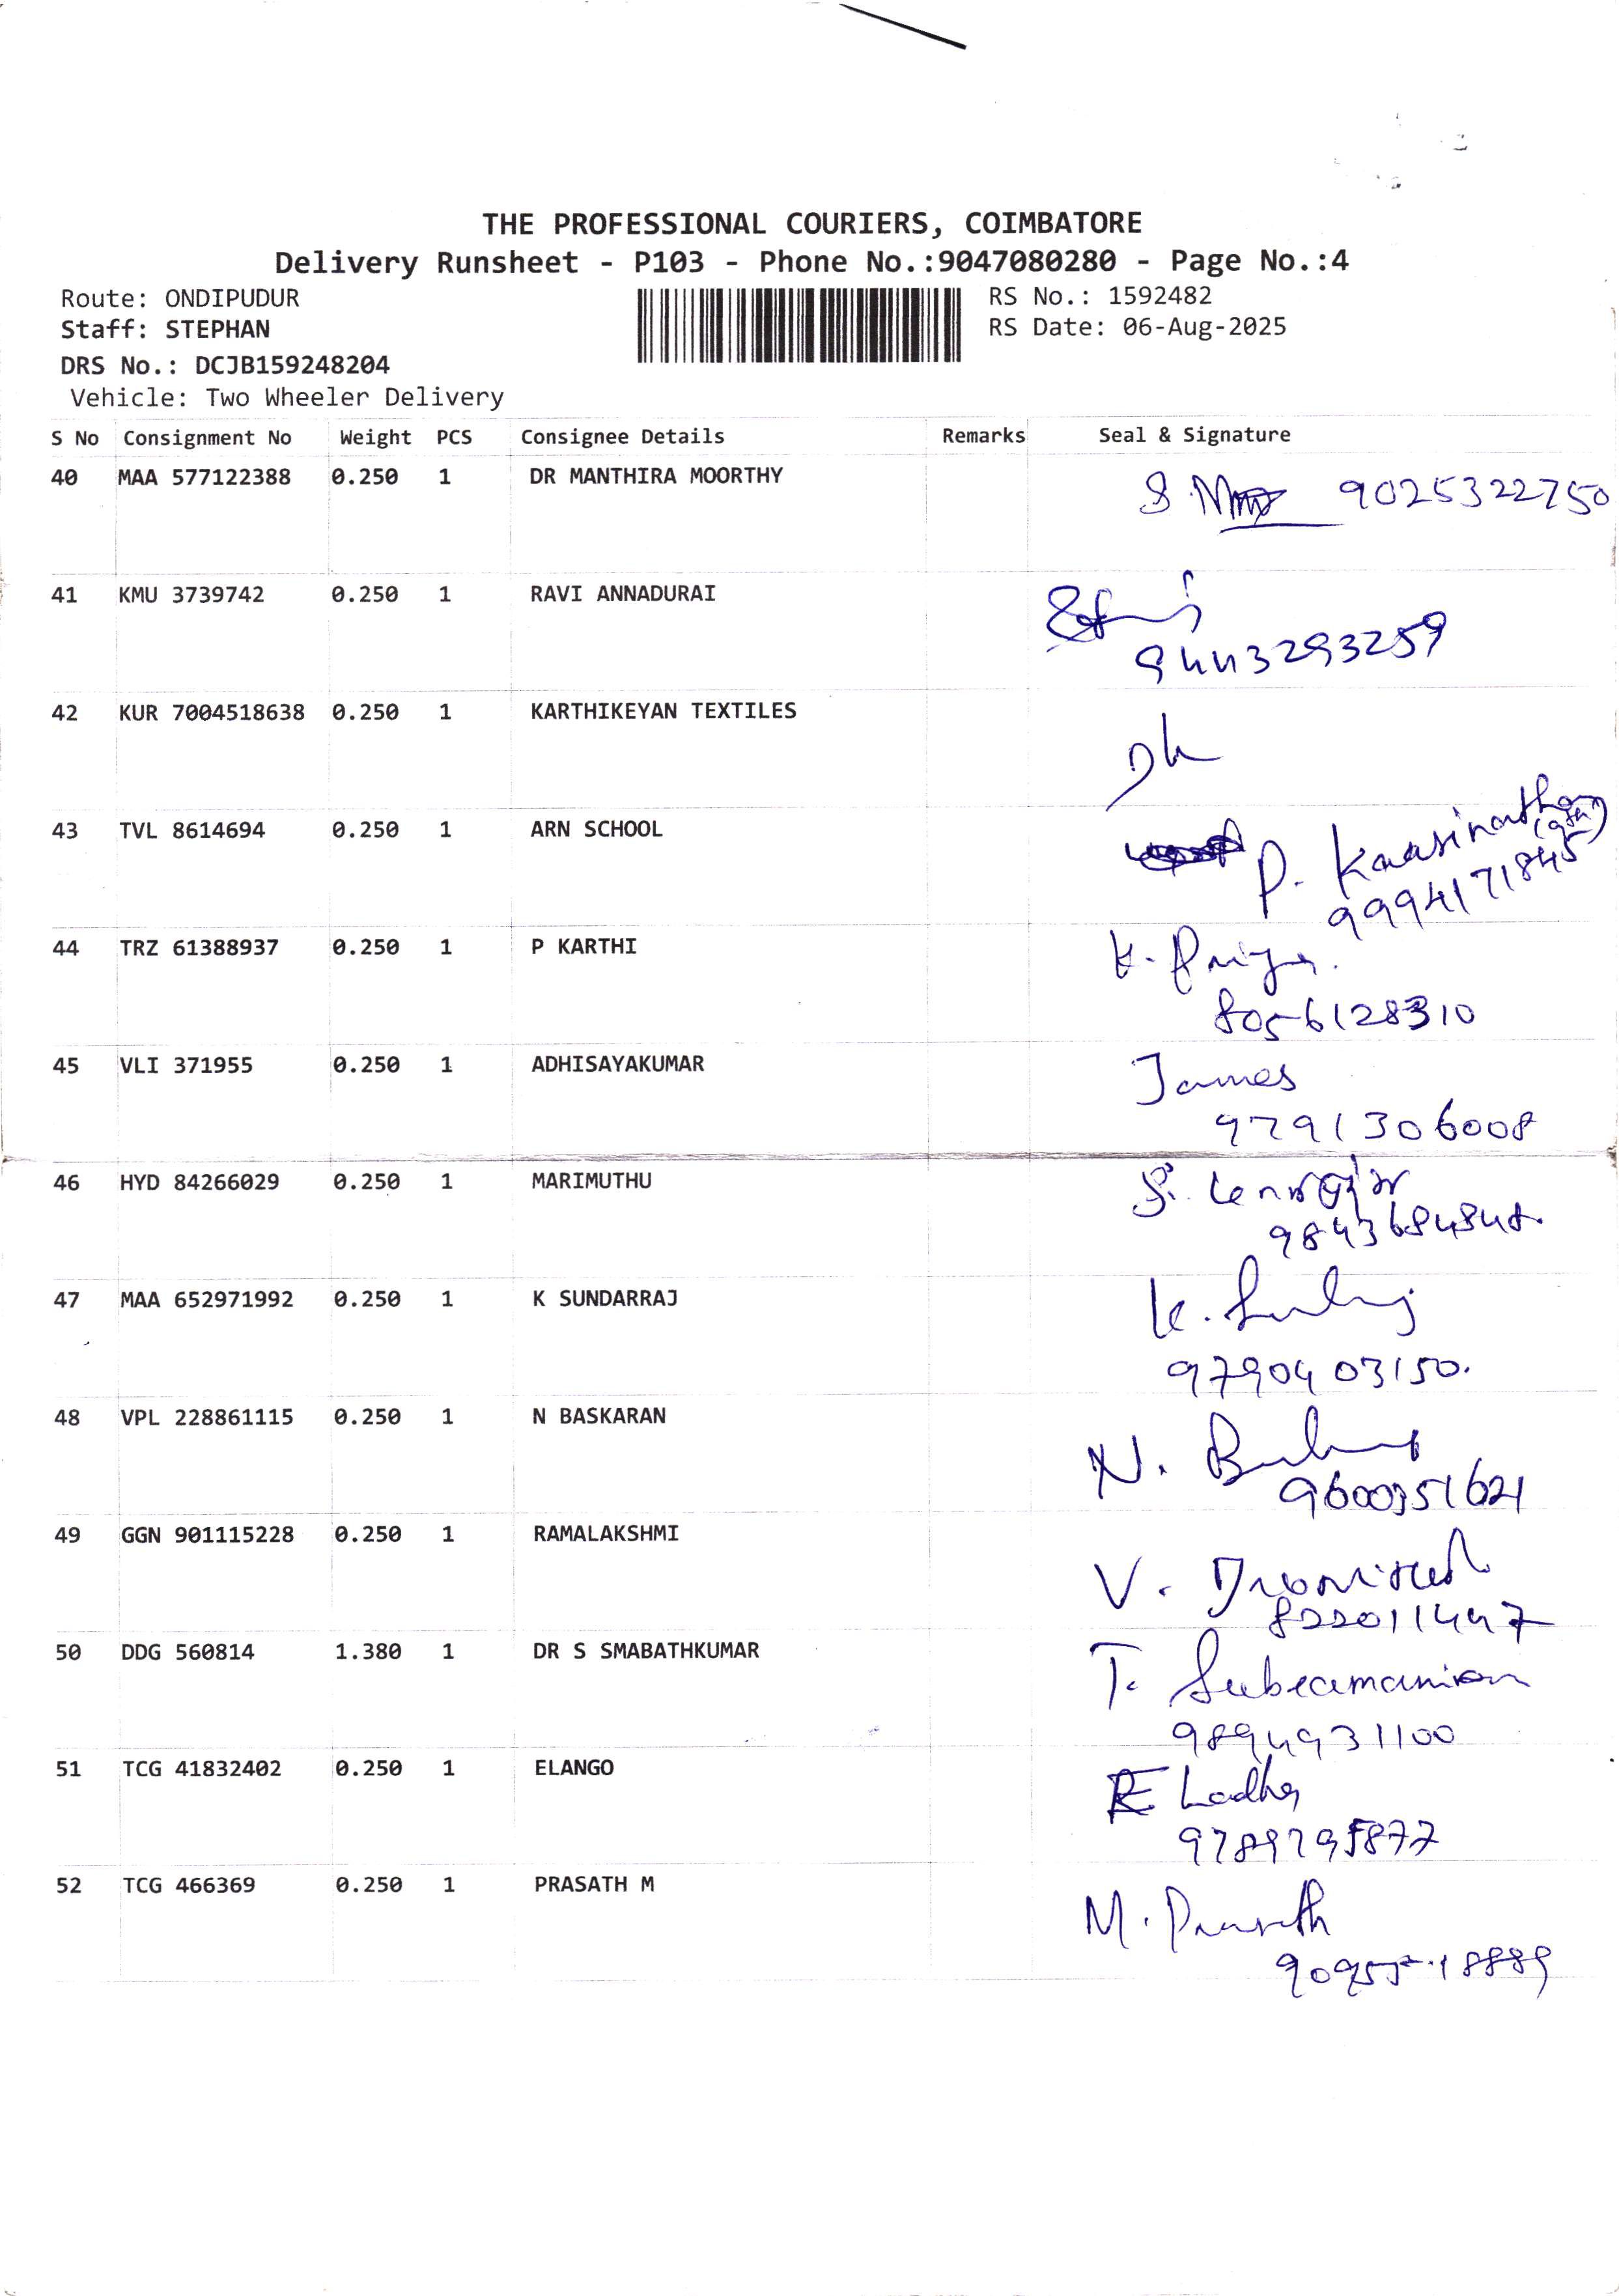 THE PROFESSIONAL COURIERS, COIMBATORE
Delivery Runsheet - P103 - Phone No.:9047080280 - Page No.:4
Route: ONDIPUDUR
RS No.: 1592482
Staff: STEPHAN
RS Date: 06-Aug-2025
DRS No.: DCJB159248204
Vehicle: Two Wheeler Delivery
S No Consignment No Weight PCS Consignee Details Remarks Seal & Signature
40 MAA 577122388 0.250 1 DR MANTHIRA MOORTHY
9025322750
41 KMU 3739742 0.250 1 RAVI ANNADURAI
9443293259
42 KUR 7004518638 0.250 1 KARTHIKEYAN TEXTILES
43 TVL 8614694 0.250 1 ARN SCHOOL
P. Kaasinathan
9994171845
44 TRZ 61388937 0.250 1 P KARTHI
K. Priya.
8056128310
45 VLI 371955 0.250 1 ADHISAYAKUMAR
James
9791306008
46 HYD 84266029 0.250 1 MARIMUTHU
9843684848.
47 MAA 652971992 0.250 1 K SUNDARRAJ
9790403150.
48 VPL 228861115 0.250 1 N BASKARAN
N.
9600351621
49 GGN 901115228 0.250 1 RAMALAKSHMI
V.
822011447
50 DDG 560814 1.380 1 DR S SMABATHKUMAR
T. Subramanian
9894931100
51 TCG 41832402 0.250 1 ELANGO
9789795877
52 TCG 466369 0.250 1 PRASATH M
M. Prasath
9095518889